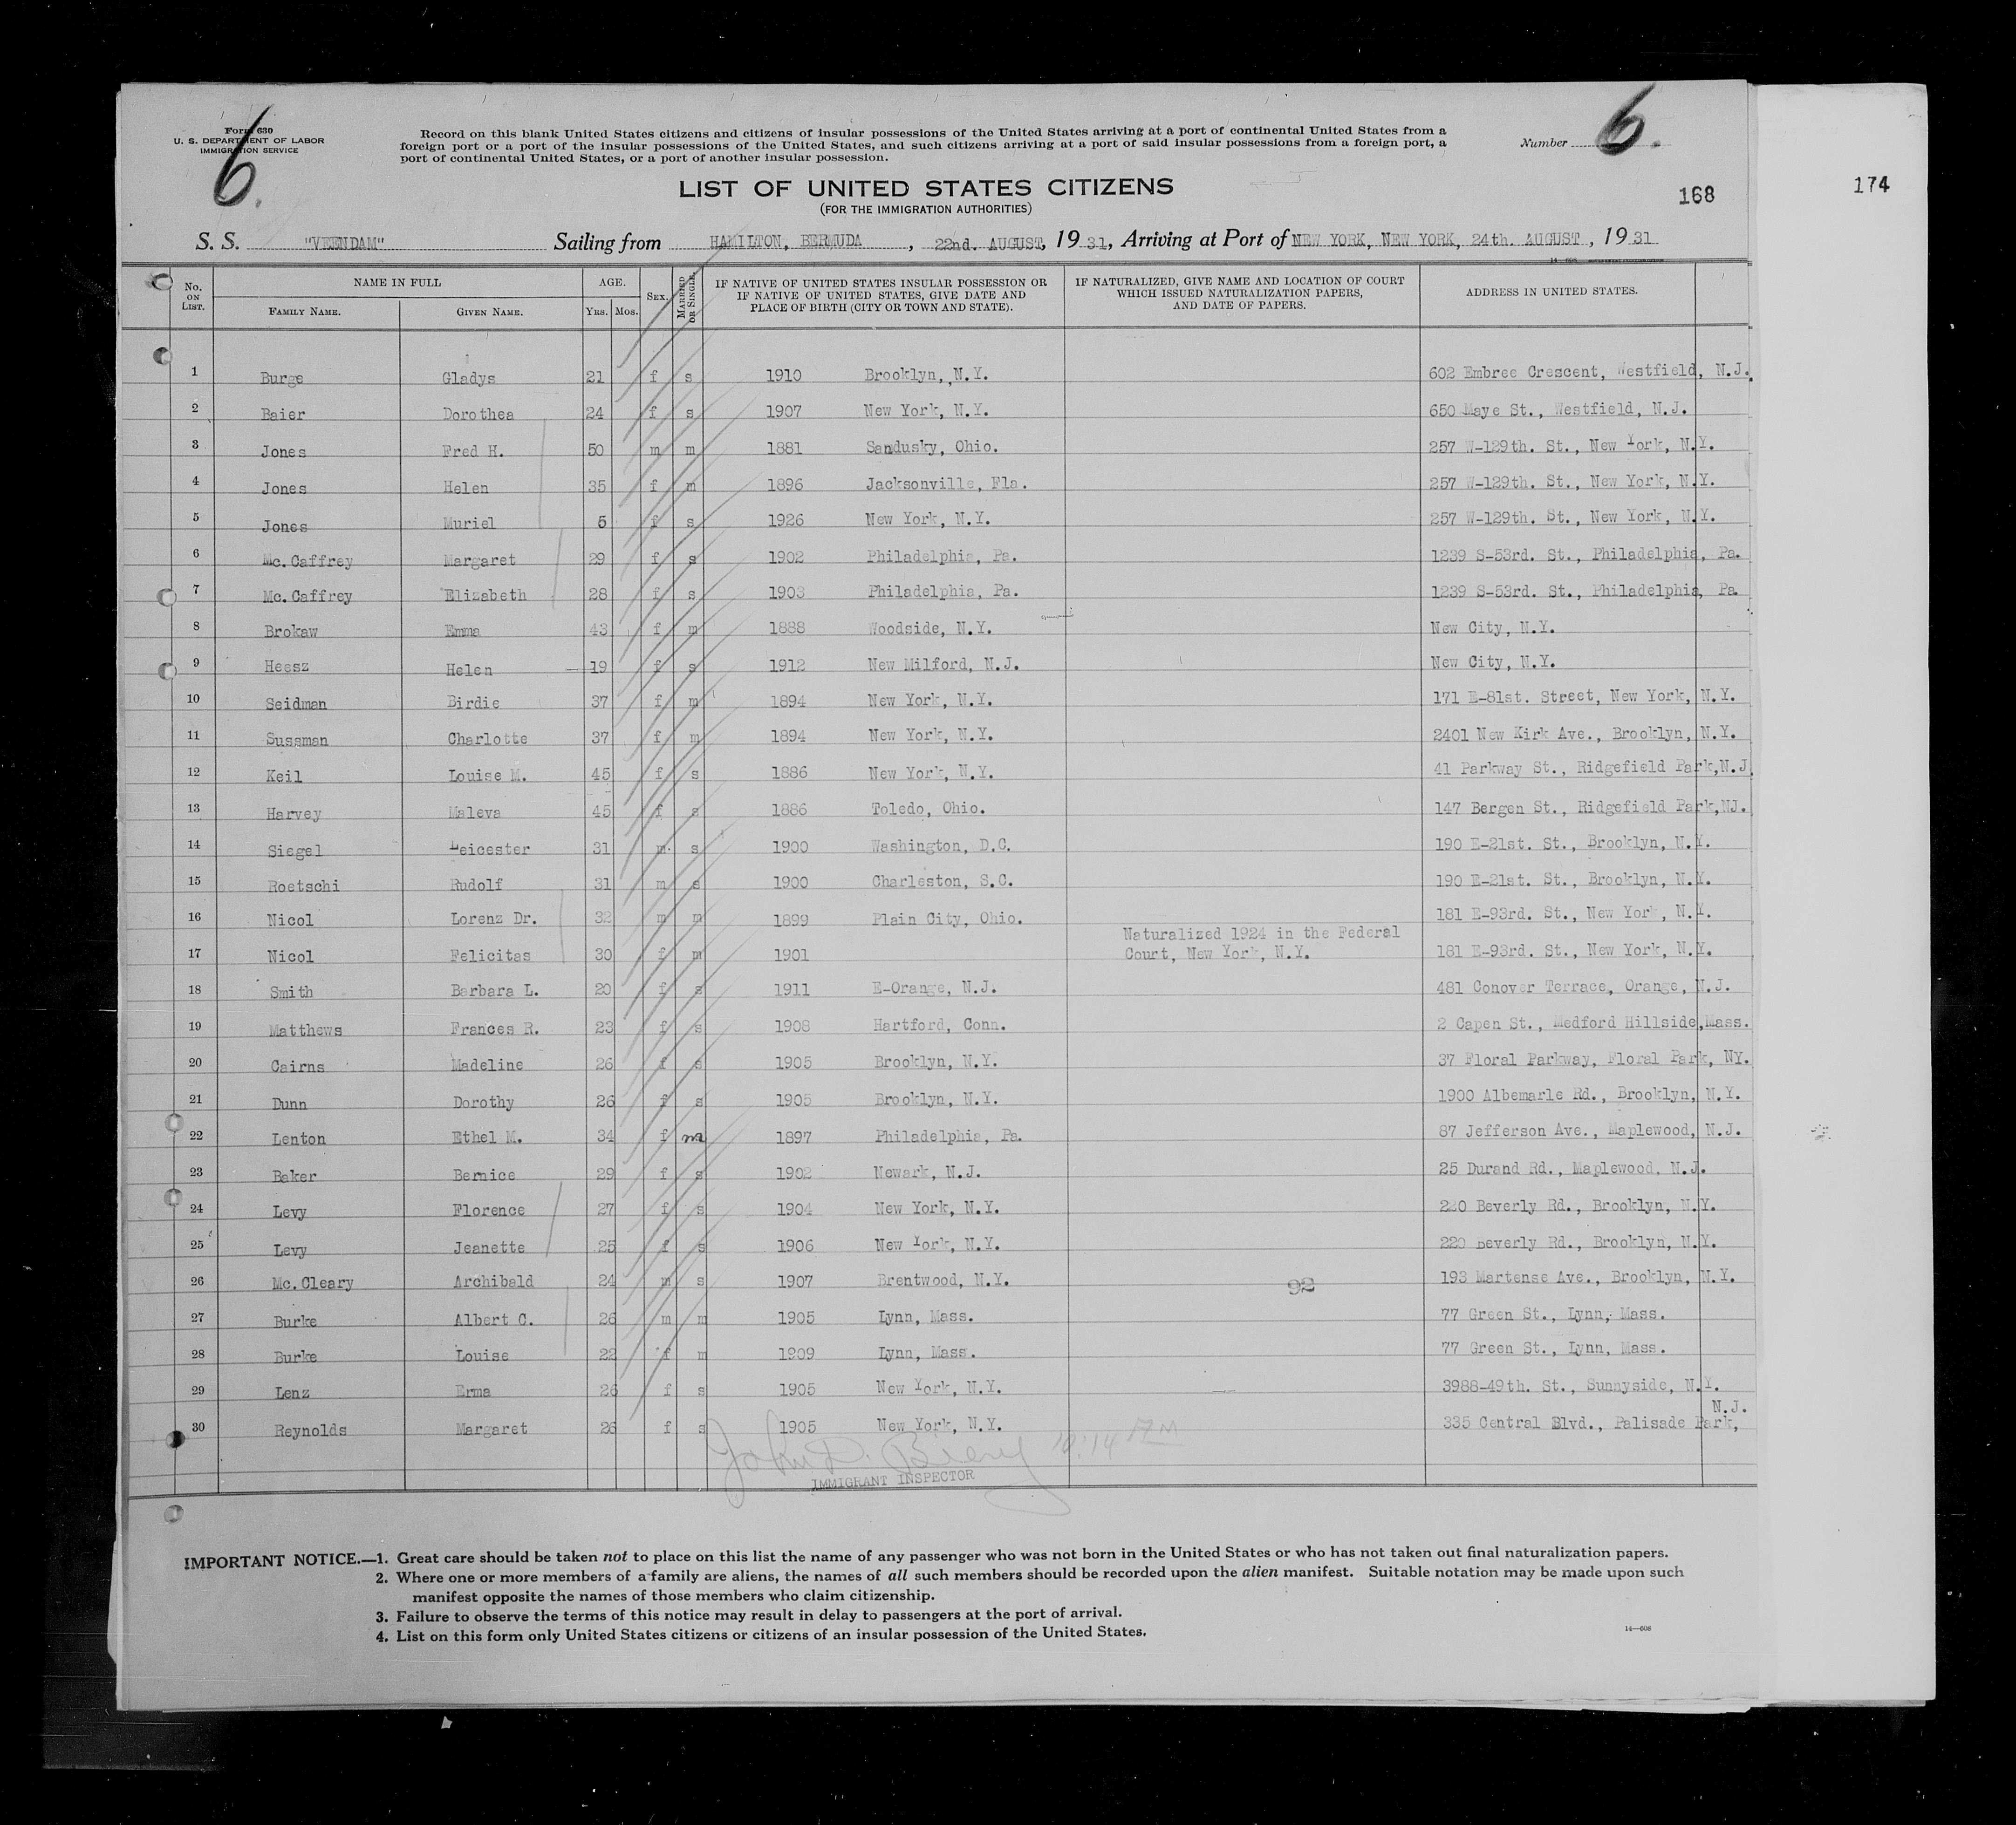 Form 630
U. S. DEPARTMENT OF LABOR
IMMIGRATION SERVICE
6.
Record on this blank United States citizens and citizens of insular possessions of the United States arriving at a port of continental United States from a
foreign port or a port of the insular possessions of the United States, and such citizens arriving at a port of said insular possessions from a foreign port, a
port of continental United States, or a port of another insular possession.
Number 6.
LIST OF UNITED STATES CITIZENS
(FOR THE IMMIGRATION AUTHORITIES)
168
174
S. S. "VEENDAM" Sailing from HAMILTON, BERMUDA, 22nd. AUGUST, 1931, Arriving at Port of NEW YORK, NEW YORK, 24th. AUGUST, 1931
No. ON LIST. NAME IN FULL FAMILY NAME. GIVEN NAME. AGE. YRS. MOS. SEX. MARRIED OR SINGLE. IF NATIVE OF UNITED STATES INSULAR POSSESSION OR IF NATIVE OF UNITED STATES, GIVE DATE AND PLACE OF BIRTH (CITY OR TOWN AND STATE). IF NATURALIZED, GIVE NAME AND LOCATION OF COURT WHICH ISSUED NATURALIZATION PAPERS, AND DATE OF PAPERS. ADDRESS IN UNITED STATES.
1 Burge Gladys 21 f s 1910 Brooklyn, N.Y. 602 Embree Crescent, Westfield, N.J.
2 Baier Dorothea 24 f s 1907 New York, N.Y. 650 Maye St., Westfield, N.J.
3 Jones Fred H. 50 m m 1881 Sandusky, Ohio. 257 W-129th. St., New York, N.Y.
4 Jones Helen 35 f m 1896 Jacksonville, Fla. 257 W-129th. St., New York, N.Y.
5 Jones Muriel 5 f s 1926 New York, N.Y. 257 W-129th. St., New York, N.Y.
6 Mc.Caffrey Margaret 29 f s 1902 Philadelphia, Pa. 1239 S-53rd. St., Philadelphia, Pa.
7 Mc.Caffrey Elizabeth 28 f s 1903 Philadelphia, Pa. 1239 S-53rd. St., Philadelphia, Pa.
8 Brokaw Emma 43 f m 1888 Woodside, N.Y. New City, N.Y.
9 Heesz Helen 19 f s 1912 New Milford, N.J. New City, N.Y.
10 Seidman Birdie 37 f m 1894 New York, N.Y. 171 E-81st. Street, New York, N.Y.
11 Sussman Charlotte 37 f m 1894 New York, N.Y. 2401 New Kirk Ave., Brooklyn, N.Y.
12 Keil Louise M. 45 f s 1886 New York, N.Y. 41 Parkway St., Ridgefield Park,N.J.
13 Harvey Maleva 45 f s 1886 Toledo, Ohio. 147 Bergen St., Ridgefield Park,NJ.
14 Siegel Leicester 31 m s 1900 Washington, D.C. 190 E-21st. St., Brooklyn, N.Y.
15 Roetschi Rudolf 31 m s 1900 Charleston, S.C. 190 E-21st. St., Brooklyn, N.Y.
16 Nicol Lorenz Dr. 32 m m 1899 Plain City, Ohio. 181 E-93rd. St., New York, N.Y.
17 Nicol Felicitas 30 f m 1901 Naturalized 1924 in the Federal Court, New York, N.Y. 181 E-93rd. St., New York, N.Y.
18 Smith Barbara L. 20 f s 1911 E-Orange, N.J. 481 Conover Terrace, Orange, N.J.
19 Matthews Frances R. 23 f s 1908 Hartford, Conn. 2 Capen St., Medford Hillside,Mass.
20 Cairns Madeline 26 f s 1905 Brooklyn, N.Y. 37 Floral Parkway, Floral Park, NY.
21 Dunn Dorothy 26 f s 1905 Brooklyn, N.Y. 1900 Albemarle Rd., Brooklyn, N.Y.
22 Lenton Ethel M. 34 f m 1897 Philadelphia, Pa. 87 Jefferson Ave., Maplewood, N.J.
23 Baker Bernice 29 f s 1902 Newark, N.J. 25 Durand Rd., Maplewood, N.J.
24 Levy Florence 27 f s 1904 New York, N.Y. 220 Beverly Rd., Brooklyn, N.Y.
25 Levy Jeanette 25 f s 1906 New York, N.Y. 220 Beverly Rd., Brooklyn, N.Y.
26 Mc.Cleary Archibald 24 m s 1907 Brentwood, N.Y. 92 193 Martense Ave., Brooklyn, N.Y.
27 Burke Albert C. 26 m m 1905 Lynn, Mass. 77 Green St., Lynn, Mass.
28 Burke Louise 22 f m 1909 Lynn, Mass. 77 Green St., Lynn, Mass.
29 Lenz Erma 26 f s 1905 New York, N.Y. 3988-49th. St., Sunnyside, N.Y.
30 Reynolds Margaret 26 f s 1905 New York, N.Y. 335 Central Blvd., Palisade Park, N.J.
IMMIGRANT INSPECTOR
IMPORTANT NOTICE.—1. Great care should be taken not to place on this list the name of any passenger who was not born in the United States or who has not taken out final naturalization papers.
2. Where one or more members of a family are aliens, the names of all such members should be recorded upon the alien manifest. Suitable notation may be made upon such
manifest opposite the names of those members who claim citizenship.
3. Failure to observe the terms of this notice may result in delay to passengers at the port of arrival.
4. List on this form only United States citizens or citizens of an insular possession of the United States.
14—608